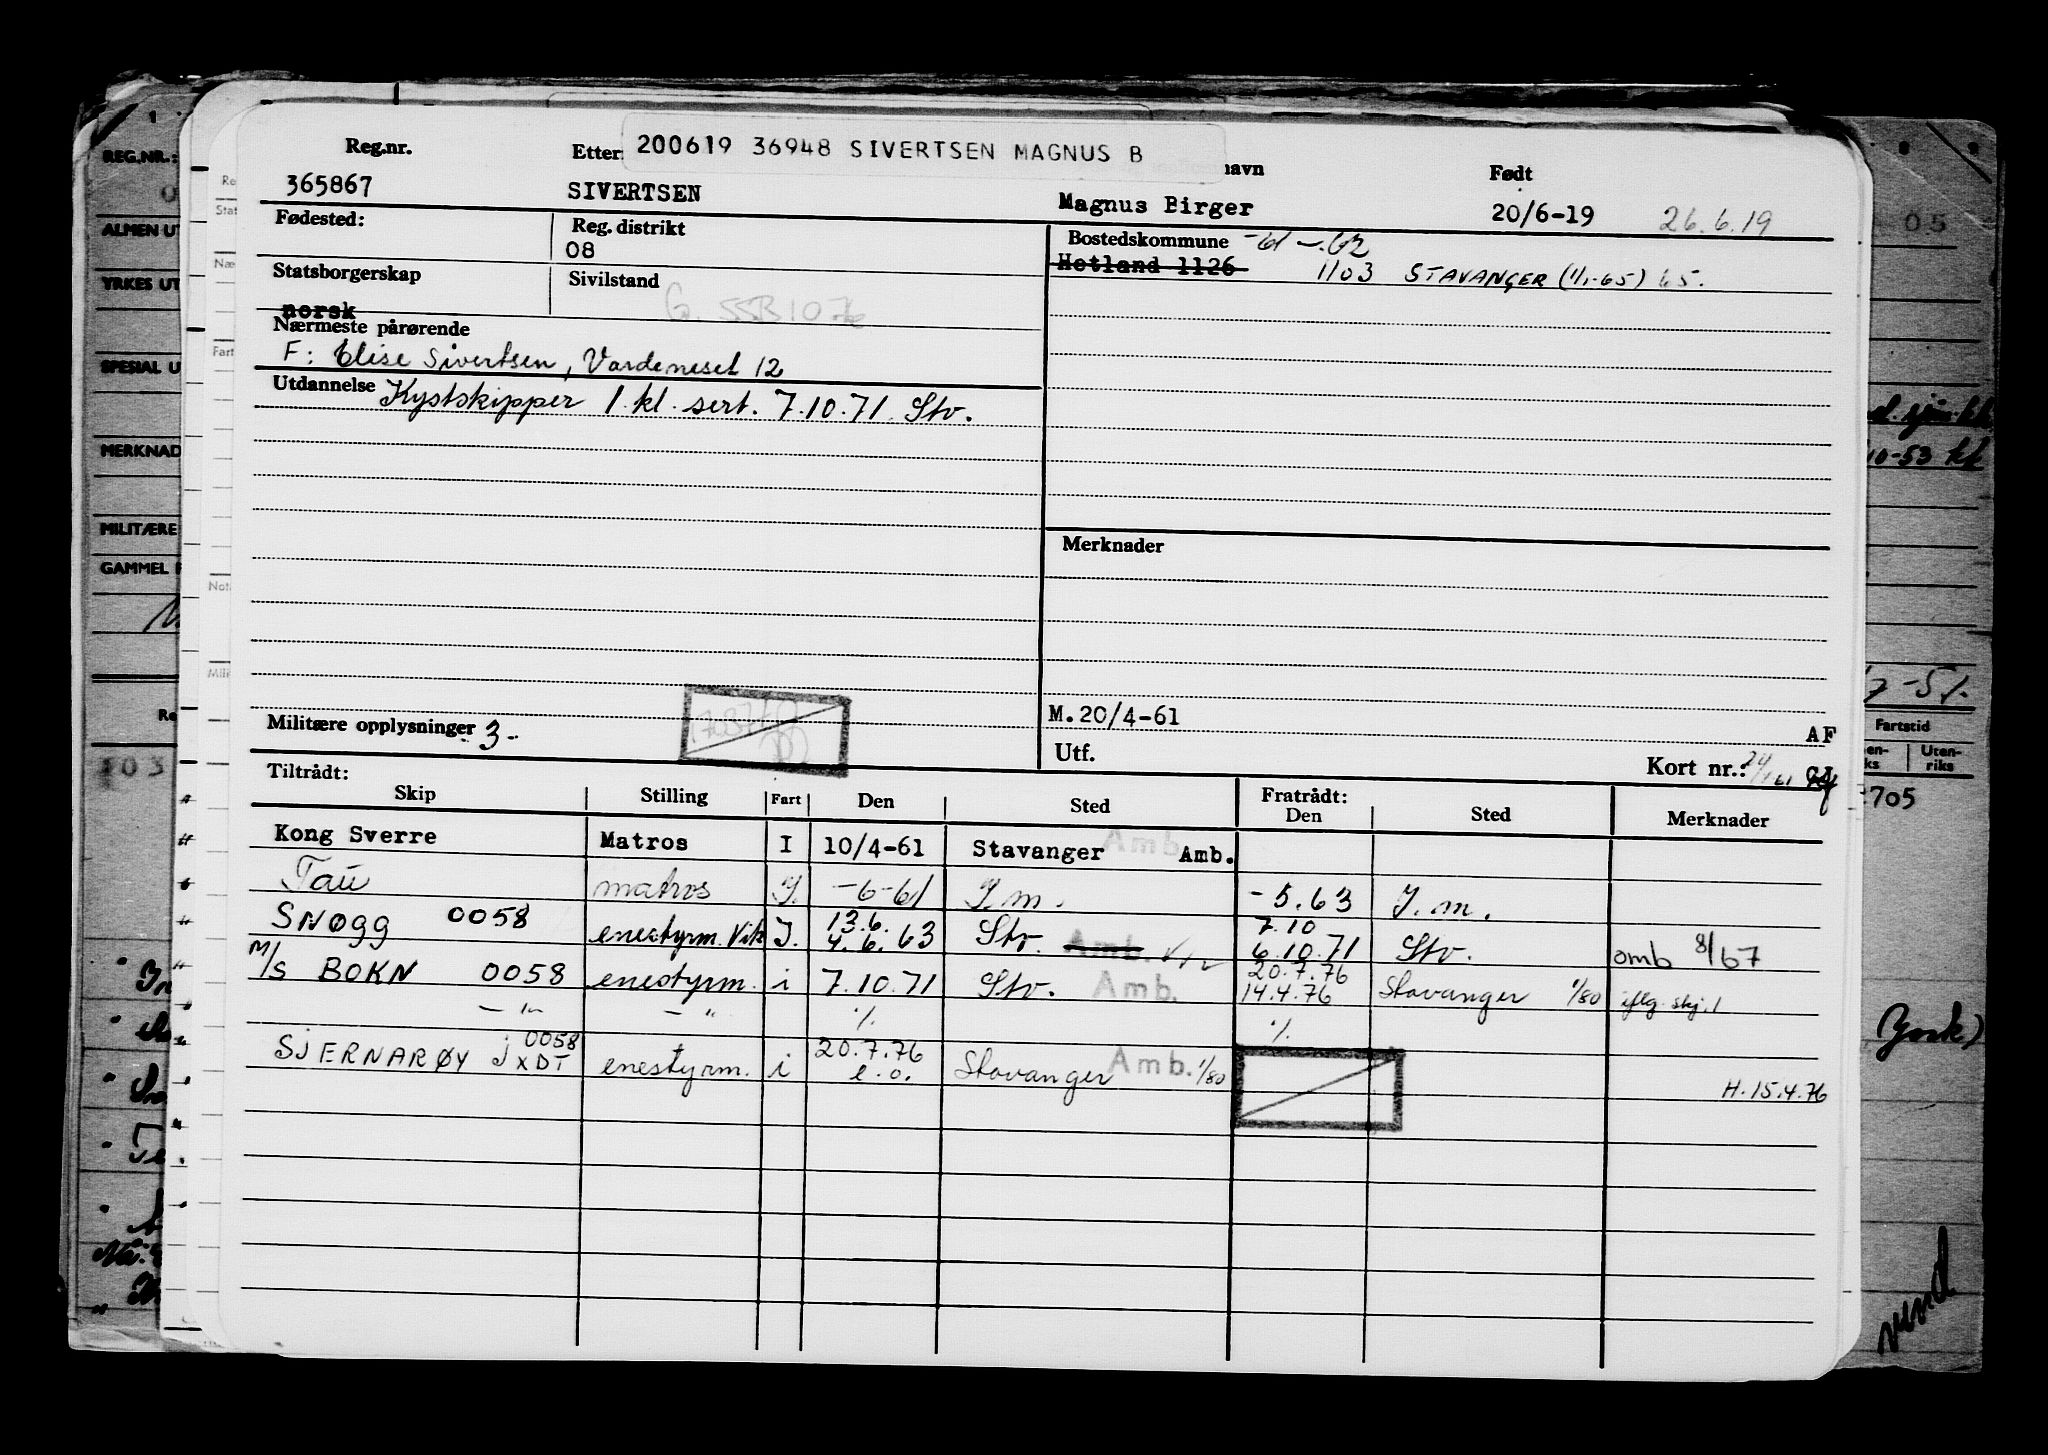 200619 36948 SIVERTSEN MAGNUS B
Reg.nr. Etter navn Født
365867 SIVERTSEN Magnus Birger 20/6-19 26.6.19
Fødested: Reg. distrikt Bostedskommune -61 -.62
08 Hetland 1126 1103 STAVANGER (1/1-65) 65.
Statsborgerskap Sivilstand
norsk
Nærmeste pårørende
F: Elise Sivertsen, Vardeneset 12
Utdannelse Kystskipper 1. kl. sert. 7.10.71. Stv.
Merknader
M.20/4-61
Militære opplysninger 3- AF
Utf. Kort nr.:
Tiltrådt: Fratrådt:
Skip Stilling Fart Den Sted Den Sted Merknader
Kong Sverre Matros I 10/4-61 Stavanger Amb. Amb.
Tau matros I. -6-61 I.m. -5.63 I.m.
13.6. 7.10
SNØGG 0058 enestyrm. Vik I. 4.6.63 Stv. Amb. 6.10.71 Stv. omb 8/67
20.7.76
M/S BOKN 0058 enestyrm. i 7.10.71 Stv. Amb. 14.4.76 Stavanger 1/80 iflg. skj. 1
— " — — " % %
0058 20.7.76
SJERNARØY JXDT enestyrm. i e.o. Stavanger Amb. 1/80
H.15.4.76
REG.NR.:
ALMEN UT
YRKES UT
SPESIAL U
MERKNAD
MILITÆRE
GAMMEL
05
10-53 kk
Fartstid
Uten-
riks
705